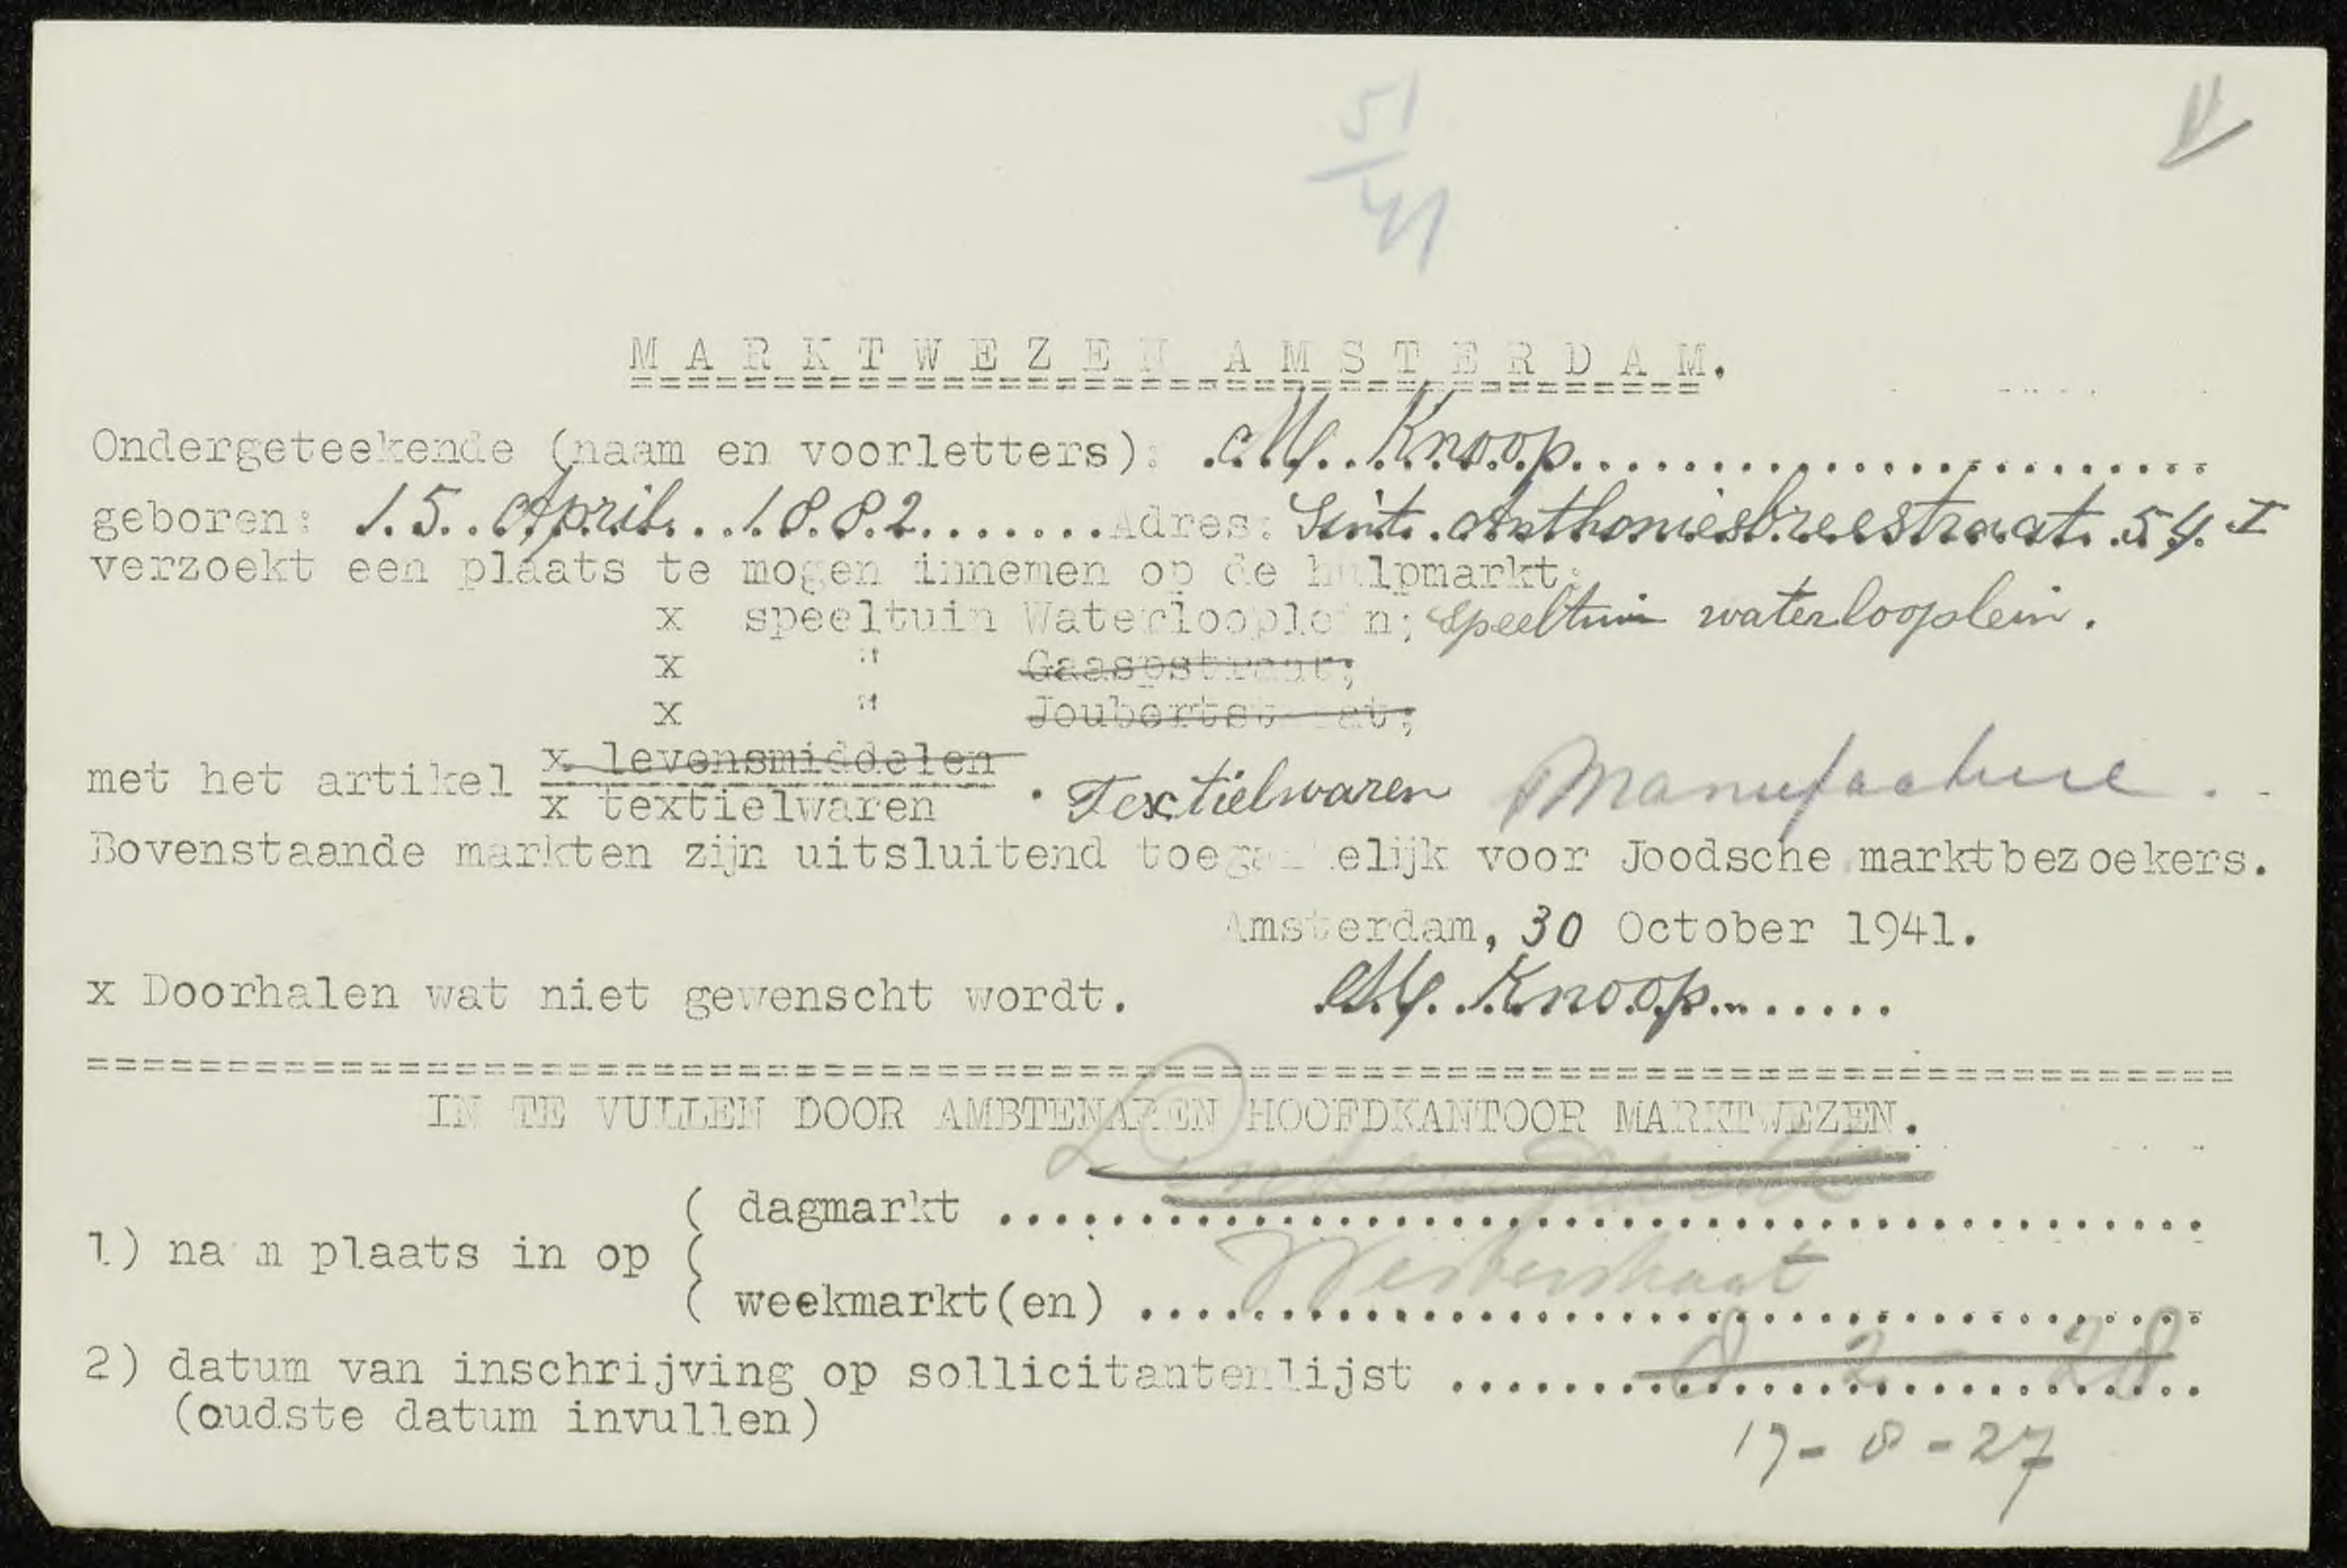 51
41
MARKTWEZEN AMSTERDAM.
Ondergeteekende (naam en voorletters): M. Knoop
geboren: 15 April 1882 Adres: Sint Anthoniesbreestraat 54 I
verzoekt een plaats te mogen innemen op de hulpmarkt:
x speeltuin Waterlooplein; speeltuin waterlooplein.
x " Gaaspstraat;
x " Joubertstraat;
met het artikel x levensmiddelen
x textielwaren . Textielwaren Manufacture .
Bovenstaande markten zijn uitsluitend toegankelijk voor Joodsche marktbezoekers.
Amsterdam, 30 October 1941.
x Doorhalen wat niet gewenscht wordt. M. Knoop
IN TE VULLEN DOOR AMBTENAREN HOOFDKANTOOR MARKTWEZEN.
Lindengracht
( dagmarkt
1) nam plaats in op (
( weekmarkt(en) Westerstraat
2) datum van inschrijving op sollicitantenlijst 8 2 - 28
(oudste datum invullen)
17-8-27